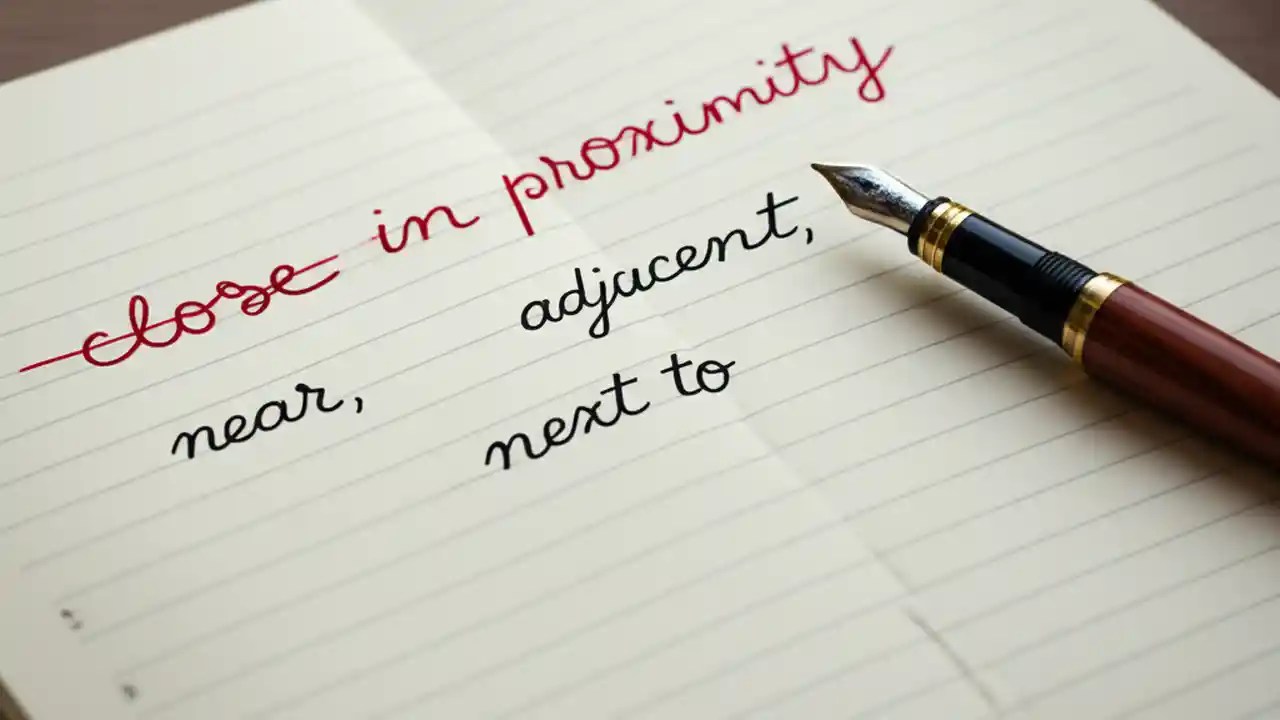 close in proximity
near, adjacent,
next to